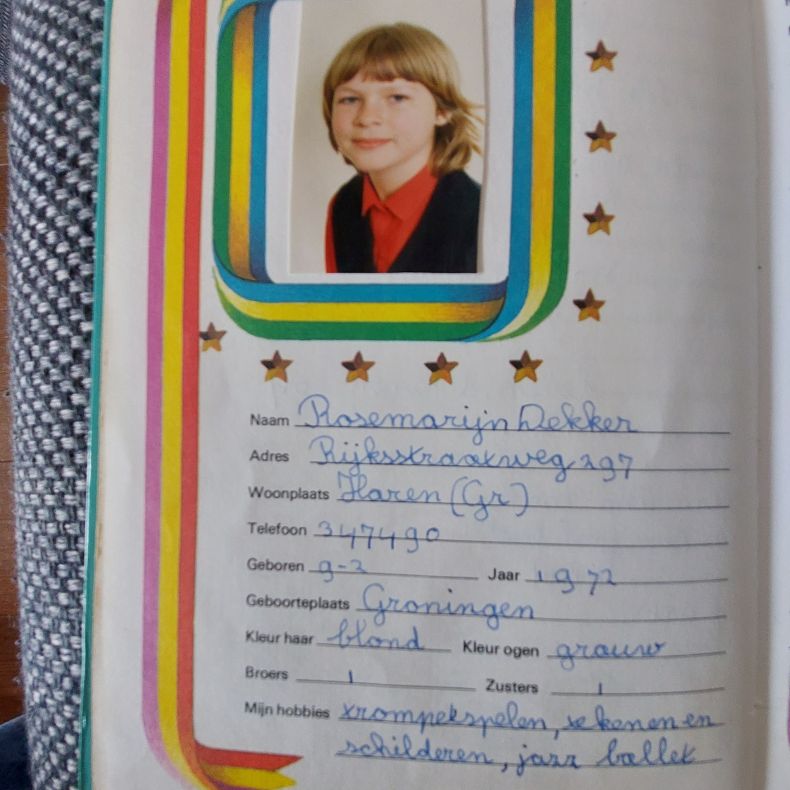 Naam Rosemarijn Dekker
Adres Rijksstraatweg 297
Woonplaats Haren (Gr)
Telefoon 347490
Geboren 9-2 Jaar 1972
Geboorteplaats Groningen
Kleur haar blond Kleur ogen grauw
Broers 1 Zusters 1
Mijn hobbies trompetspelen, tekenen en
schilderen, jazz ballet